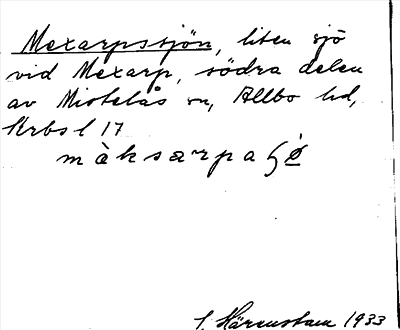 Mexarpssjön, liten sjö
vid Mexarp, södra delen
av Mistelås sn, Allbo hd,
Krbs l 17
màksarpa
S. Härenstam 1933